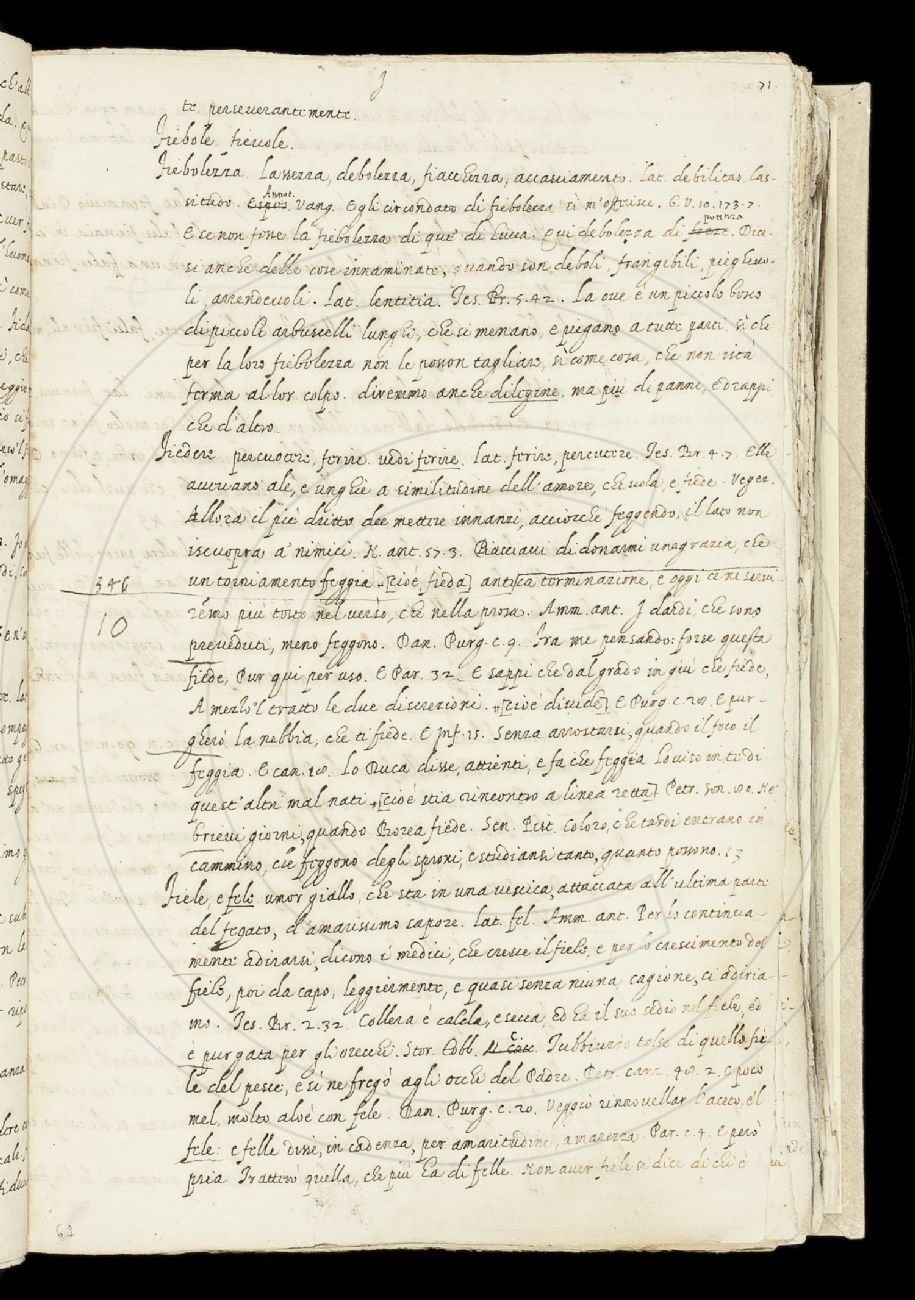 F
71.
te. perseverantemente.
Fiebole. fievole.
Fiebolezza. Lassezza, debolezza, fiacchezza, accasciamento. Lat. debilitas, las-
situdo. Espos. Annot. Vang. Egli circondato di fiebolezza si m'offerisse. G. V. 10. 173. 7.
E se non fosse la fiebolezza di que' di Lucca. Qui debolezza di forze potenza. Dice-
si anche delle cose innaminate, quando son deboli, frangibili, pieghevo-
li, arrendevoli. Lat. lentitia. Tes. Br. 5. 42. La ove è un piccolo bosco
di piccoli arbuscelli lunghi, che si menano, e piegano a tutte parti, sì che
per la loro fiebolezza non le posson tagliare, sì come cosa, che non istà
ferma al lor colpo. diremmo anche dilegine, ma più di panni, e drappi
che d'altro.
Fiedere. percuotere, ferire. vedi ferire. Lat. ferire, percutere. Tes. Br. 4. 7. Elle
avevano ale, e unghie a similitudine dell'amore, che vola, e fiede. Veget.
Allora il piè dritto dee mettere innanzi, acciocche feggendo, il lato non
iscuopra a' nimici. N. ant. 57. 3. Piacciavi di donarmi una grazia, che
346
un torniamento feggia [cioè fieda] antica terminazione, e oggi ce ne servi
10
remo più tosto nel verso, che nella prosa. Amm. ant. I dardi, che sono
preveduti, meno feggono. Dan. Purg. c. 9. Fra me pensando: forse questa
fiede, Pur qui per uso. E Par. 32. E sappi che dal grado in giù che fiede,
A mezzo 'l tratto le due discrezioni. [cioè divide] E Purg. c. 28. E pur-
gherò la nebbia, che ti fiede. E Inf. 15. Senza arrostarsi, quando il foco il
feggia. E can. 18. Lo Duca disse, attienti, e fa che feggia Lo viso in te di
quest'altri mal nati [cioè stia rincontro a linea retta] Petr. Son. 80. Ne'
brievi giorni, quando Borea fiede. Sen. Pist. Coloro, che tardi entrano in
cammino, che feggono degli sproni, e studiansi tanto, quanto possono. 13
Fiele, e fele umor giallo, che sta in una vescica, attaccata all'ultima parte
del fegato, d'amarissimo sapore. Lat. fel. Amm. ant. Per lo continua-
mente adirarsi, dicono i medici, che cresce il fiele, e per lo crescimento del
fiele, poi da capo, leggiermente, e quasi senza niuna cagione, ci adiria-
mo. Tes. Br. 2. 32. Collera è calda, e secca, ed ha il suo sedio nel fiele, ed
è purgata per gli orecchi. Stor. Tobb. Tubbiuzzo tolse di quello fie-
le del pesce, e si ne fregò agli occhi del Padre. Petr. canz. 48. 2. e poco
mel, molto aloè con fele. Dan. Purg. c. 20. Veggio rinnovellar l'aceto, e 'l
fele: e felle disse, in cadenza, per amaritudine, amarezza. Par. c. 4. e però
pria Tratterò quella, che più ha di felle. Non aver fiele si dice di chi è
64